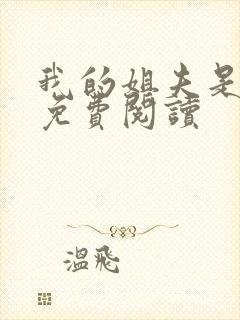 我的姐夫是
免費閱讀
溫飛